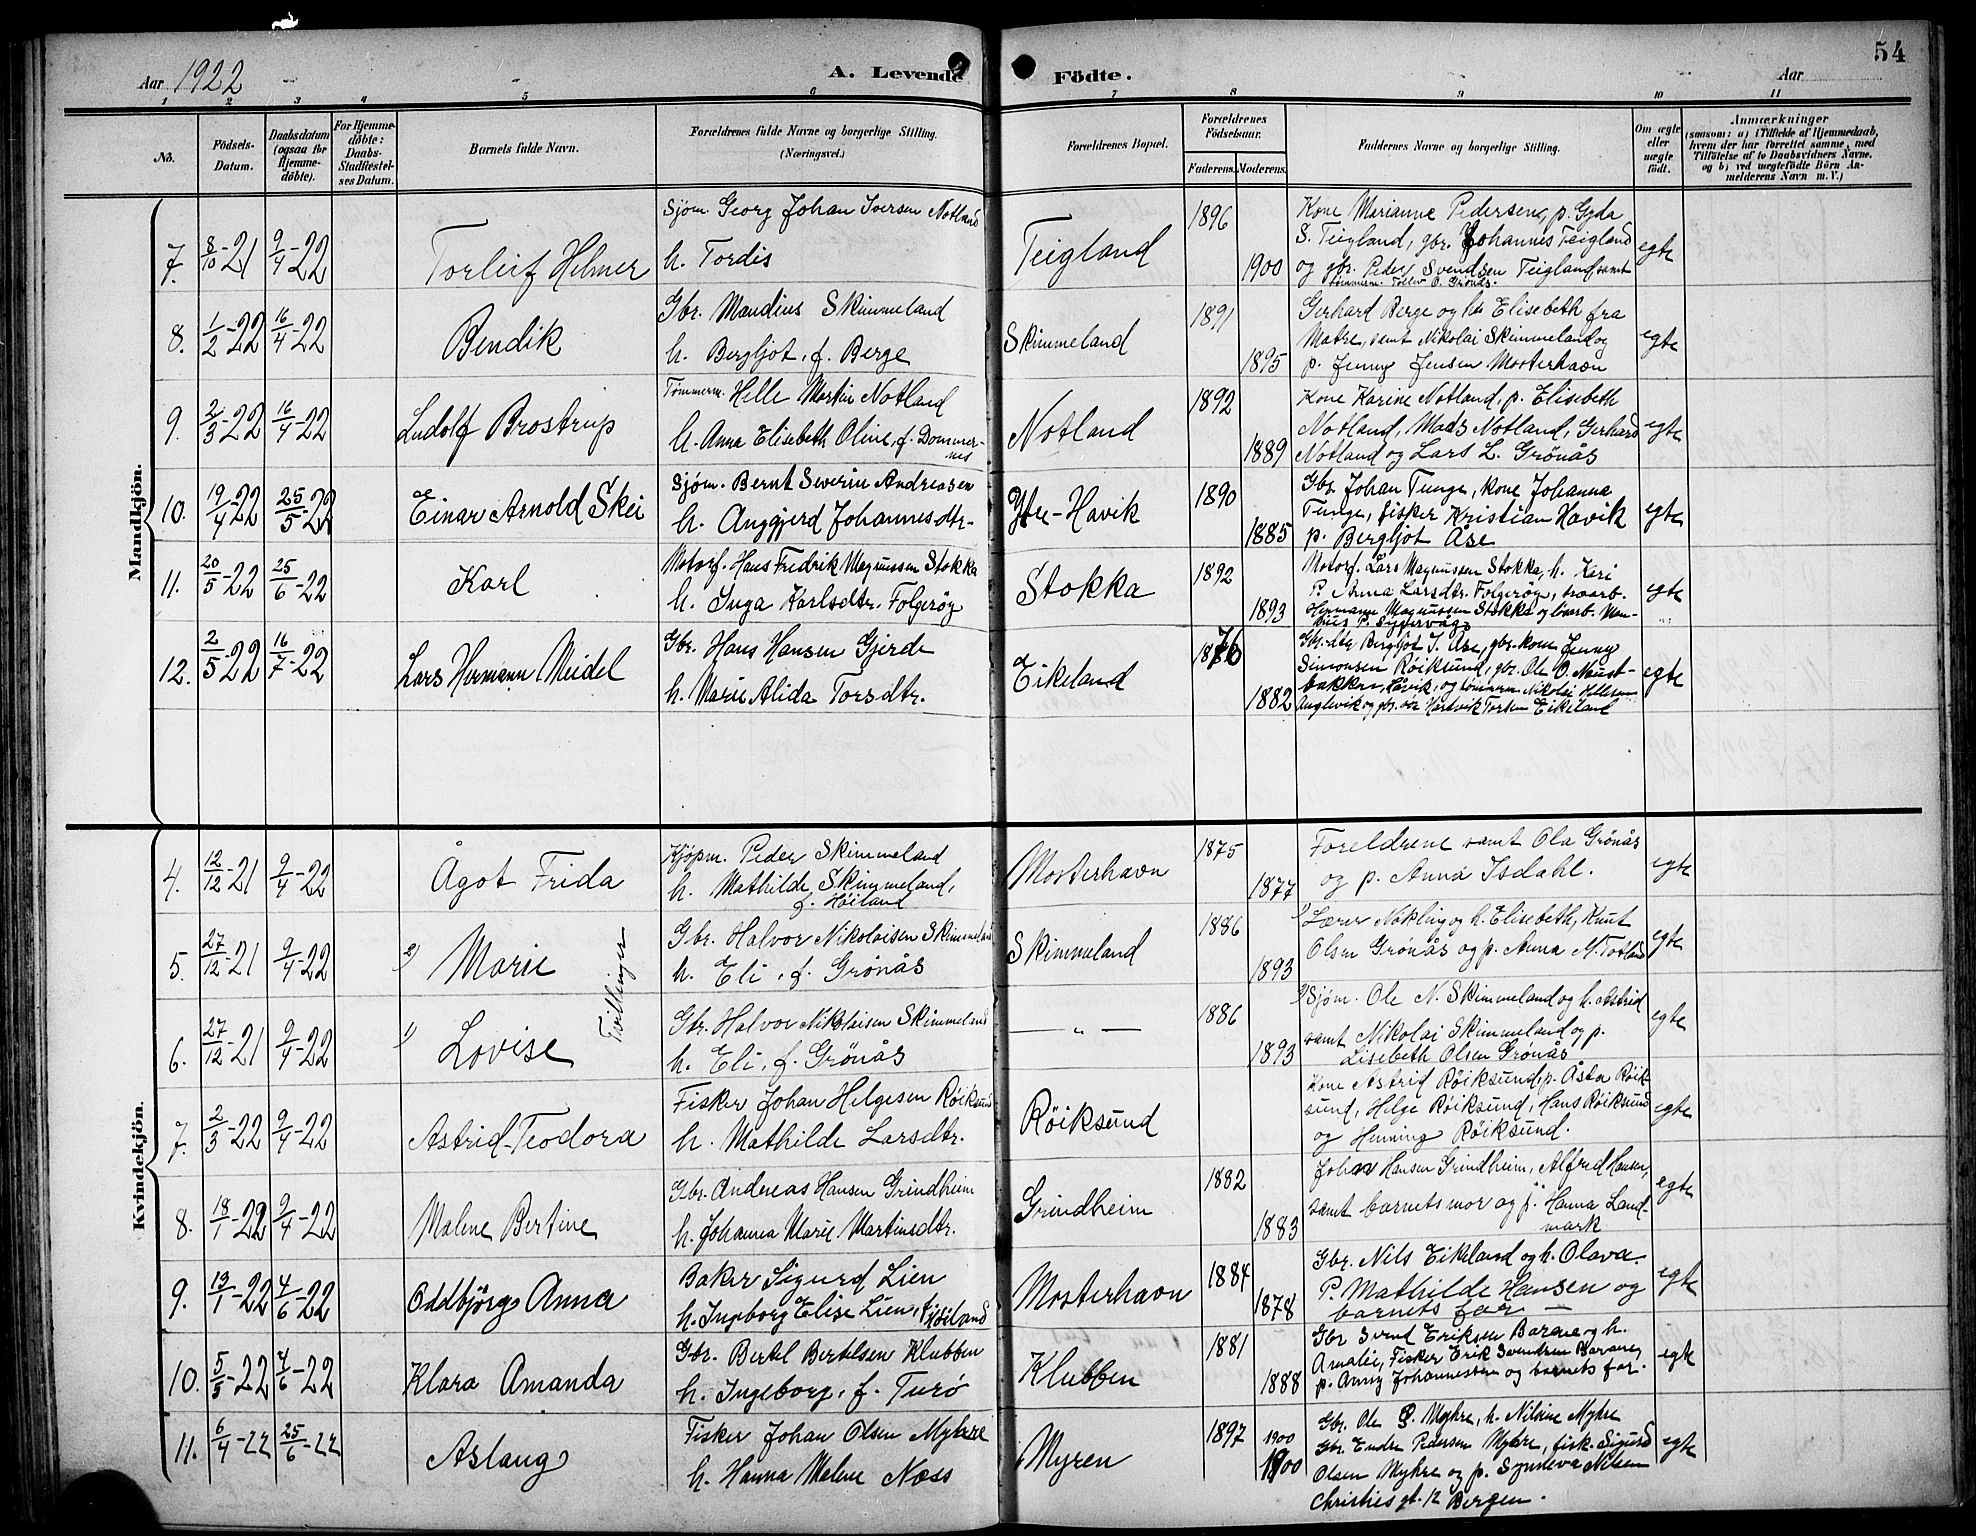 54
Aar 1922
A. Levende Födte.
Aar
1 2 3 4 5 6 7 8 9 10 11
No.
Födsels-
Datum.
Daabsdatum
(ogsaa for
Hjemme-
döbte).
For Hjemme-
döbte:
Daabs-
Stadfæstel-
ses Datum.
Barnets fulde Navn.
Forældrenes fulde Navne og borgerlige Stilling.
(Næringsvei.)
Forældrenes Bopæl.
Forældrenes
Födselsaar.
Faderens. Moderens.
Faddernes Navne og borgerlige Stilling.
Om ægte
eller
uægte
födt.
Anmærkninger
(saasom: a) i Tilfælde af Hjemmedaab,
hvem der har forrettet samme, med
Tilföielse af to Daabsvidners Navne.
og b) ved uægtefödte Börn An-
melderens Navn m. V.)
Mandkjön.
7. 8/10-21 9/4-22 Torleif Helmer
Sjøm. Georg Johan Iversen Notland
h. Tordis
Teigland 1896 1900
Kone Marianne Pedersen, p. Gyda
S. Teigland, gbr. Johannes Teigland
og gbr. Peder Svendsen Teigland samt
tømmerm. Tollev O. Grønås.
egte
8. 1/2-22 16/4-22 Bendik
Gbr. Mandius Skimmeland
h. Bergljot, f. Berge
Skimmeland 1891 1895
Gerhard Berge og h. Elisebeth fra
Matre, samt Nikolai Skimmeland og
p. Jenny Jensen Mosterhavn
egte
9. 2/3-22 16/4-22 Ludolf Brostrup
Tømmerm. Helle Martin Notland
h. Anna Elisebeth Oline, f. Dommer-
nes
Notland 1892 1889
Kone Karine Notland, p. Elisebeth
Notland, Mads Notland, Gerhard
Notland og Lars L. Grönås
egte
10. 19/4-22 25/5-22 Einar Arnold Skei
Sjøm. Bernt Severin Andreasen
h. Anggjerd Johannesdtr.
Ytre-Havik 1890 1885
Gbr. Johan Tunge, kone Johanna
Tunge, fisker Kristian Havik
p. Bergljot Åse
egte
11. 20/5-22 25/6-22 Karl
Motorf. Hans Fredrik Magnussen Stokka
h. Inga Karlsdtr. Folgerøy
Stokka 1892 1893
Motorf. Lars Magnussen Stokka, h. Kari
P. Anna Larsdtr. Folgerøy,
Hermann Magnussen Stokka og
egte
12. 2/5-22 16/7-22 Lars Hermann Meidel
Gbr. Hans Hansen Gjerde
h. Marie Alida Torsdtr.
Eikeland 1876 1882
Gbr. dtr. Bergljot J. Åse, gbr. kone Jenny
Simonsen Røiksund, gbr. Ole O. Naust-
bakken, Håvik, og tømmerm Nikolai Hellesen
Anglevik og gbr. søn Hartvik Torsen Eikeland
egte
Kvindekjön.
4. 12/12-21 9/4-22 Ågot Frida
Kjøpm. Peder Skimmeland
h. Mathilde Skimmeland,
f. Høiland
Mosterhavn 1875 1877
Foreldrene samt Ola Grönås
og p. Anna Isdahl.
egte
5. 27/12-21 9/4-22 2) Marie
Tvillinger
Gbr. Halvor Nikolaisen Skimmeland
h. Eli, f. Grønås
Skimmeland 1886 1893
1) Lærer Nökling og h. Elisebeth, Knut
Olsen Grønås og p. Anna N. Totland
egte
6. 27/12-21 9/4-22 1) Lovise
Gbr. Halvor Nikolaisen Skimmeland
h. Eli, f. Grönås
— " — 1886 1893
2) Sjøm. Ole N. Skimmeland og h. Astrid
samt Nikolai Skimmeland og p.
Lisebeth Olsen Grønås
egte
7. 2/3-22 9/4-22 Astrid-Teodora
Fisker Johan Helgesen Røiksund
h. Mathilde Larsdtr.
Röiksund
Kone Astrid Røiksund, p. Åsta Røik-
sund, Helge Røiksund, Hans Røiksund
og Henning Røiksund.
egte
8. 18/1-22 9/4-22 Malene Bertine
Gbr. Andreas Hansen Grindheim
h. Johanna Marie Martinsdtr.
Grindheim 1882 1883
Johan Hansen Grindheim, Alfred Hansen,
samt barnets mor og p. Hanna Land-
mark
egte
9. 13/1-22 4/6-22 Oddbjörg Anna
Baker Sigurd Lien
h. Ingborg Elise Lien, f. Høiland
Mosterhavn 1884 1878
Gbr. Nils Eikeland og h. Olava.
P. Mathilde Hansen og
barnets far —
egte
10. 5/5-22 4/6-22 Klara Amanda
Gbr. Bertel Bertelsen Klubben
h. Ingeborg, f. Turö
Klubben 1881 1888
Gbr Svend Eriksen Barane og h.
Amalie, Fisker Erik Svendsen Barane,
p. Anny Johannessen og barnets far.
egte
11. 6/4-22 25/6-22 Aslaug
Fisker Johan Olsen Myhre
h. Hanna Malene Næss
Myren 1897 1900 1900
Gbr. Ole P. Myhre, h. Nilsine Myhre
Gbr. Endre Pedersen Myhre, fisk. Sigurd
Olsen Myhre og p. Synneva Nilsen
Christies gt. 12 Bergen.
egte